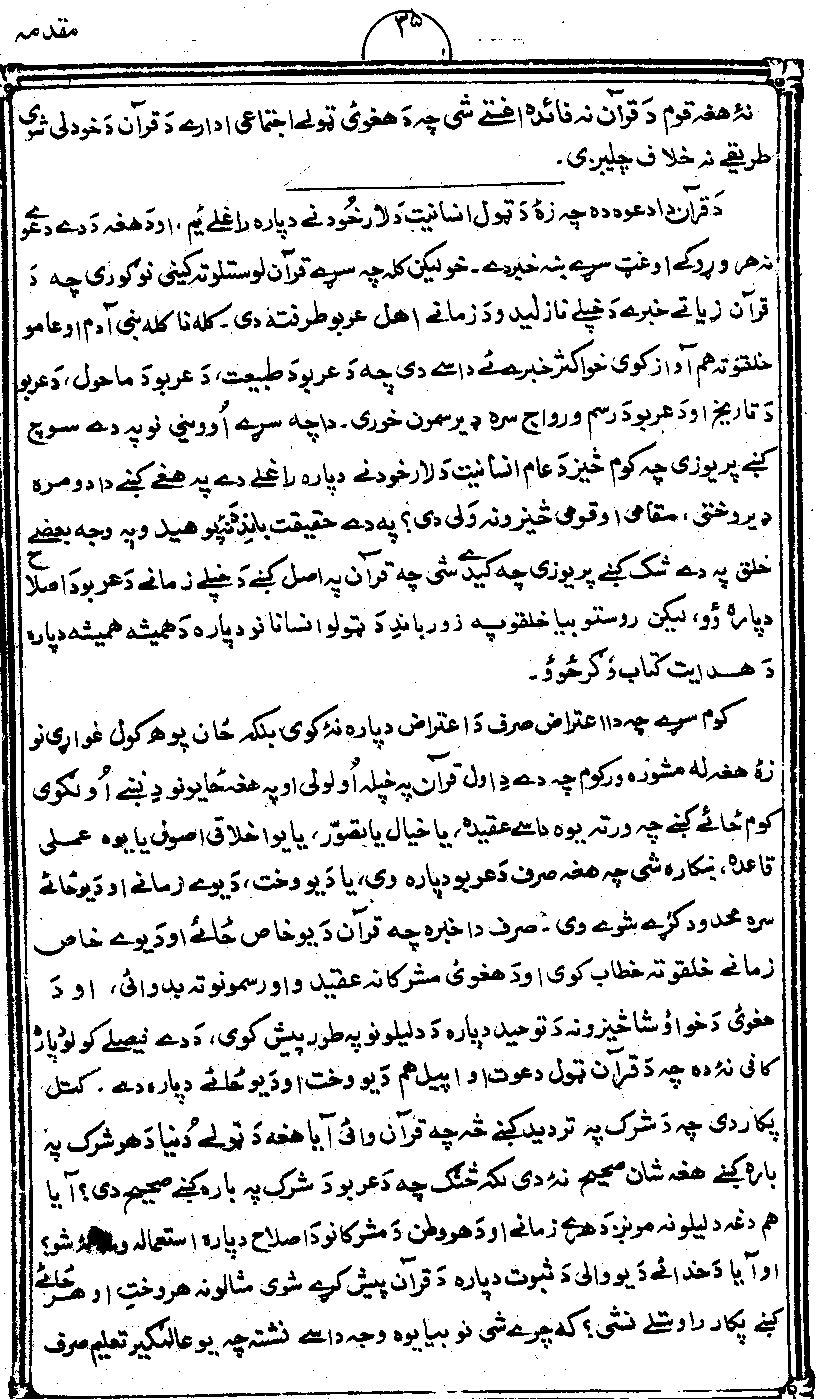 مقدمه
۳۵
نۀ هغه قوم دَ قرآن نه فائده اخستے شی چه دَ هغوئ ټولے اجتماعی ادارے دَ قرآن دَ خودلی شوی
طریقے نه خلاف چلیږی.
دَ قرآن دا دعوه ده چه زۀ دَ ټول انسانیت دَ لارخودنے دپاره راغلے یم، او دَ هغه دَ دے دعوے
نه هر وړوکے او غټ سړے ښه خبر دے۔ خو لیکن کله چه سړے قرآن لوستلو ته کینی نو ګوری چه دَ
قرآن زیاتے خبرے دَ خپلے نازلیدو دَ زمانے اهل عربو طرف ته دی۔ کله نا کله بنی آدم او عامو
خلقو ته هم آواز کوی خو اکثر خبرے ئے داسے دی چه دَ عربو دَ طبیعت، دَ عربو دَ ماحول، دَ عربو
دَ تاریخ او دَ عربو دَ رسم و رواج سره ډیر سمون خوری۔ دا چه سړے اُووینی نو په دے سوچ
کښے پریوزی چه کوم څیز دَ عام انسانیت دَ لارخودنے دپاره راغلے دے په هغے کښے دا دومره
ډیر وختی، مقامی او قومی څیزونه ولی دی؟ په دے حقیقت باندِ نۀ پوهیدو په وجه بعضے
خلق په دے شک کښے پریوزی چه کیدے شی چه قرآن په اصل کښے دَ خپلے زمانے دَ عربو دَ اصلاح
دپاره وُو، لیکن روستو بیا خلقو په زور باندِ دَ ټولو انسانانو دپاره دَ همیشه همیشه دپاره
دَ هدایت کتاب وګرځوؤ۔
کوم سړے چه دا اعتراض صرف دَ اعتراض دپاره نۀ کوی بلکه ځان پوهه کول غواړی نو
زۀ هغه له مشوره ورکوم چه دے دِ اول قرآن په خپله اُولولی او په هغه ځایونو دِ نښے اُولګوی
کوم ځائے کښے چه ورته یوه داسے عقیده، یا خیال یا تصوّر، یا یو اخلاقی اصول یا یوه عملی
قاعده ښکاره شی چه هغه صرف دَ عربو دپاره وی، یا دَ یو وخت، دَ یوے زمانے او دَ یو ځائے
سره محدود کړے شوے وی۔ صرف دا خبره چه قرآن دَ یو خاص ځائے او دَ یوے خاص
زمانے خلقو ته خطاب کوی او دَ هغوئ مشرکانه عقیدو او رسمونو ته بد وائی، او دَ
هغوئ دَ خوا و شا څیزونه دَ توحید دپاره دَ دلیلونو په طور پیش کوی، دَ دے فیصلے کولو دپاره
کافی نۀ ده چه دَ قرآن ټول دعوت او اپیل هم دَ یو وخت او دَ یو ځائے دپاره دے. کتل
پکار دی چه دَ شرک په تردید کښے څه چه قرآن وائی آیا هغه دَ ټولے دُنیا دَ هر شرک په
باره کښے هغه شان صحیح نۀ دی لکه څنګ چه دَ عربو دَ شرک په باره کښے صحیح دی؟ آیا
هم دغه دلیلونه مونږ دَ هرے زمانے او دَ هر وطن دَ مشرکانو دَ اصلاح دپاره استعماله ولے نۀ شو؟
او آیا دَ خدائے دَ یو والی دَ ثبوت دپاره دَ قرآن پیش کړے شوی مثالونه هر وخت او هر ځائے
کښے پکار راوستلے نشی؟ که چرے شی نو بیا یوه وجه داسے نشته چه یو عالمګیر تعلیم صرف